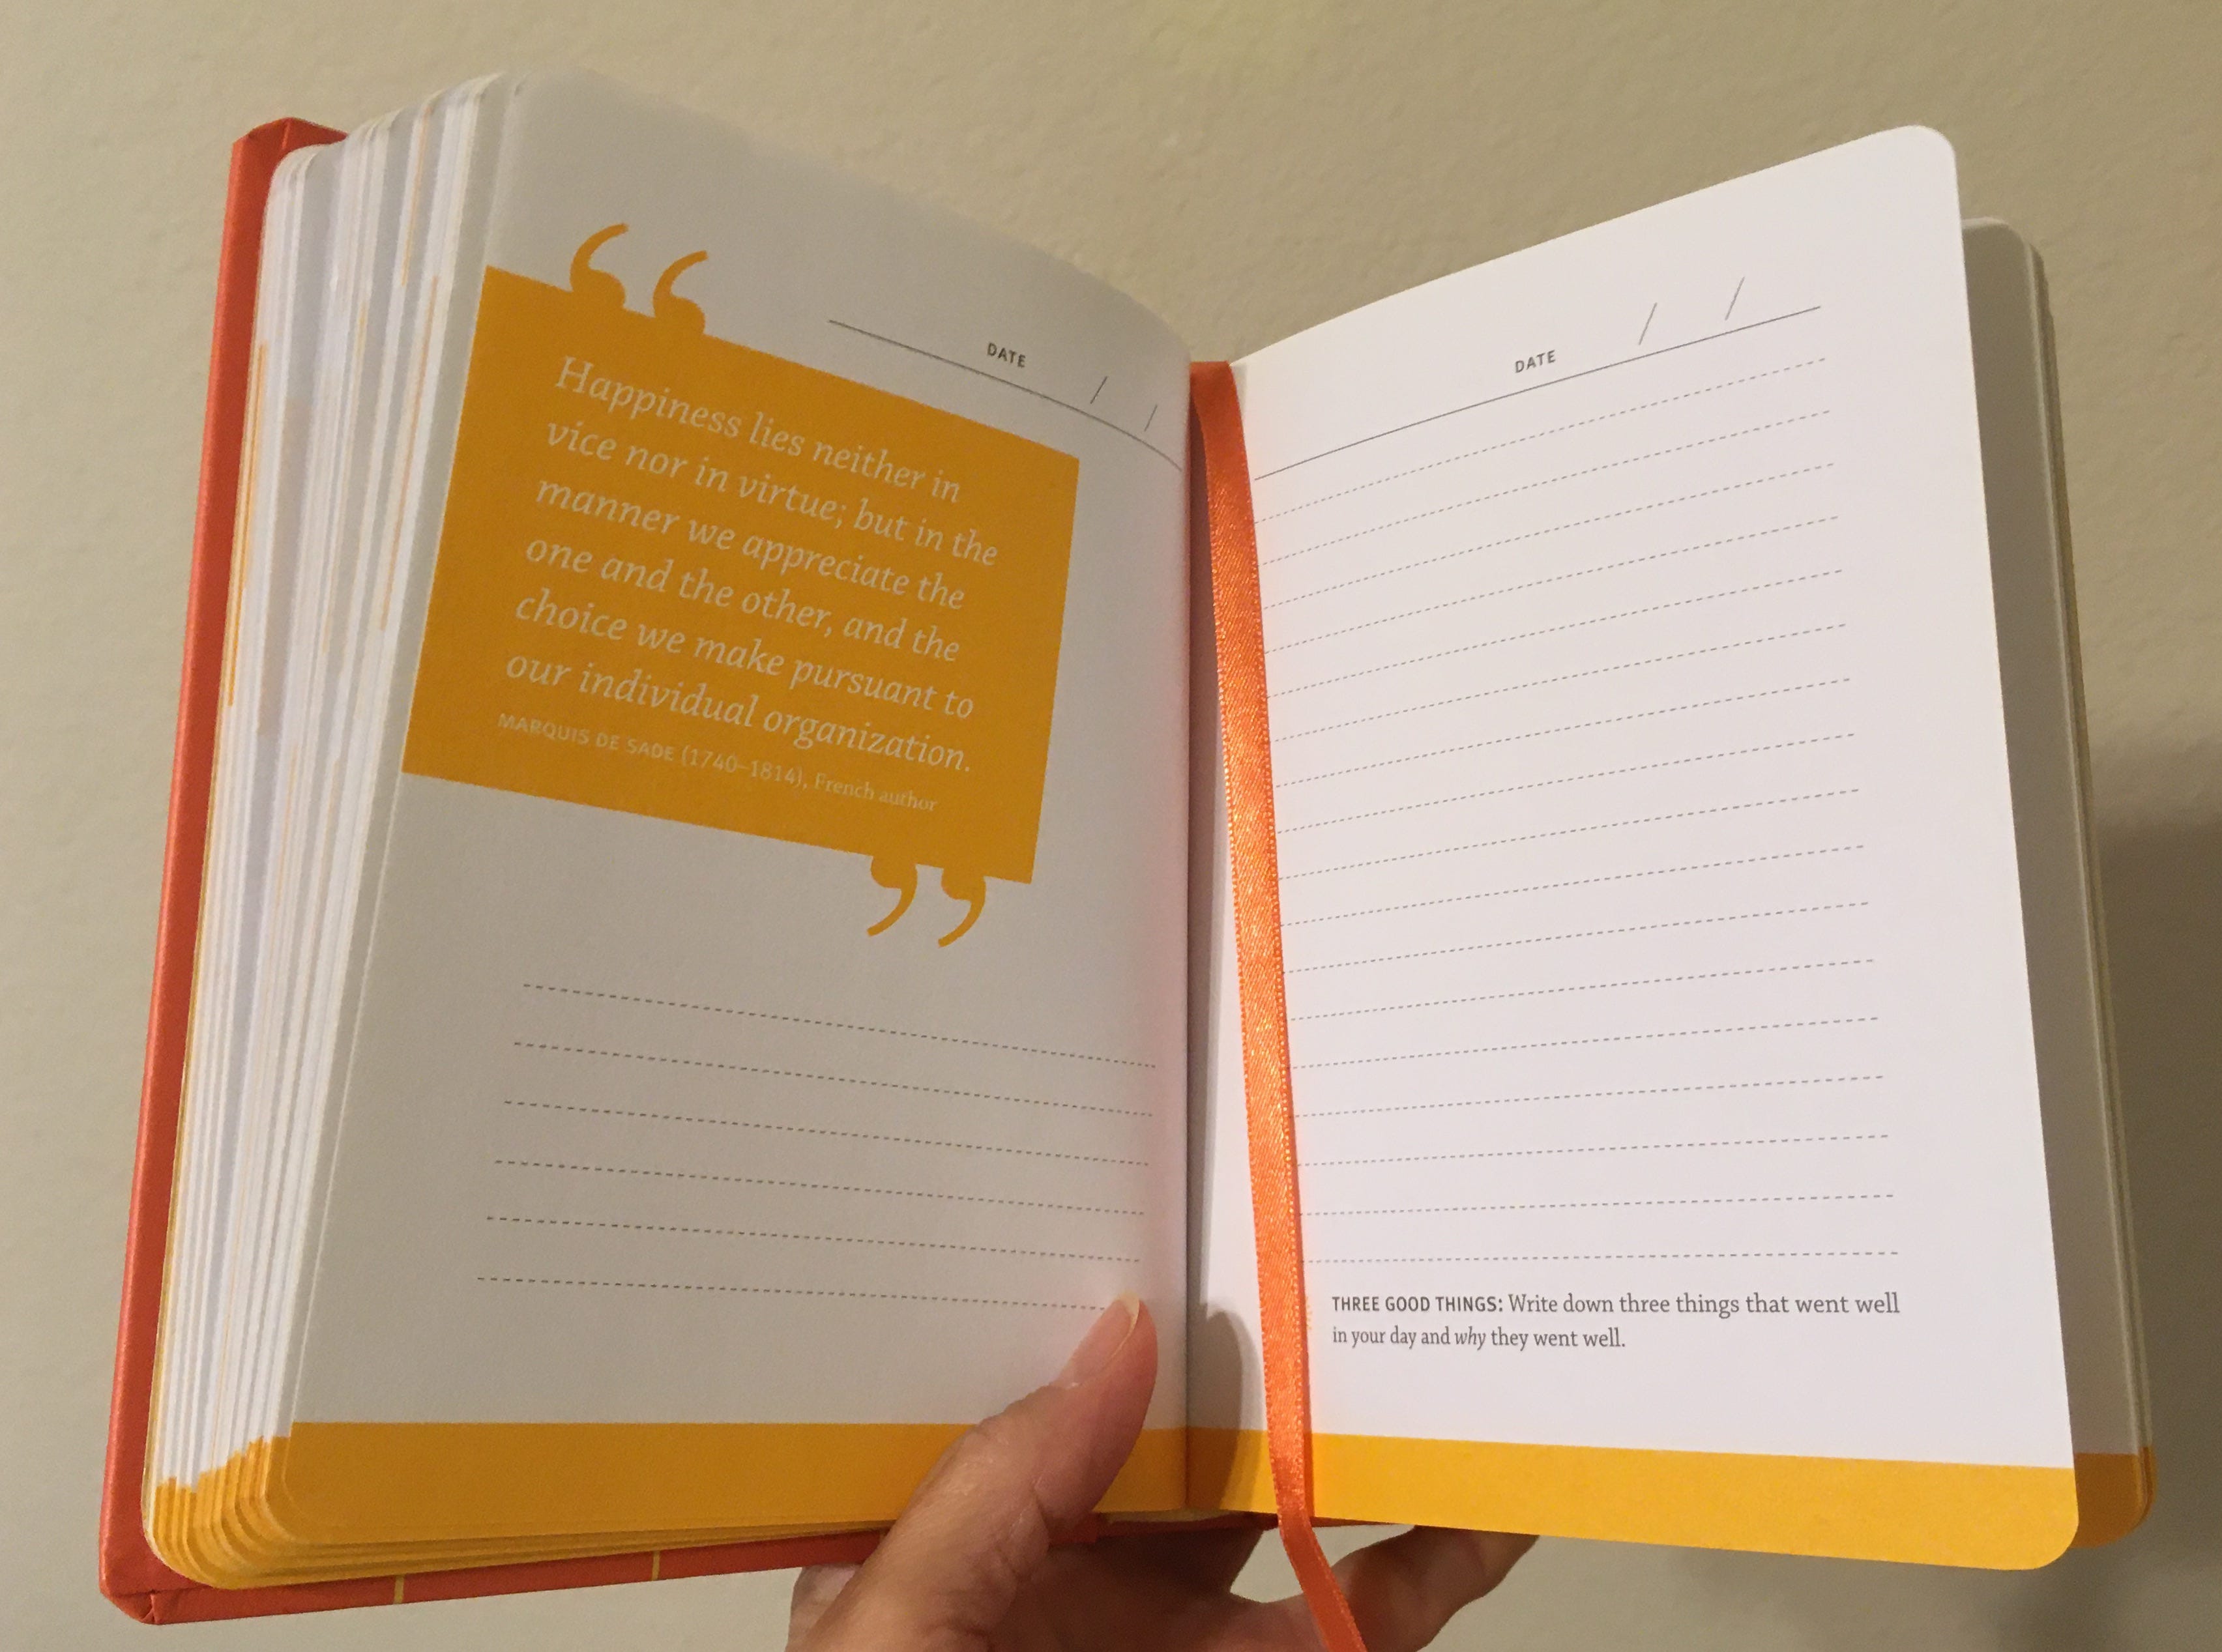 DATE / /
Happiness lies neither in
vice nor in virtue; but in the
manner we appreciate the
one and the other, and the
choice we make pursuant to
our individual organization.
MARQUIS DE SADE (1740–1814), French author
DATE / /
THREE GOOD THINGS: Write down three things that went well
in your day and why they went well.